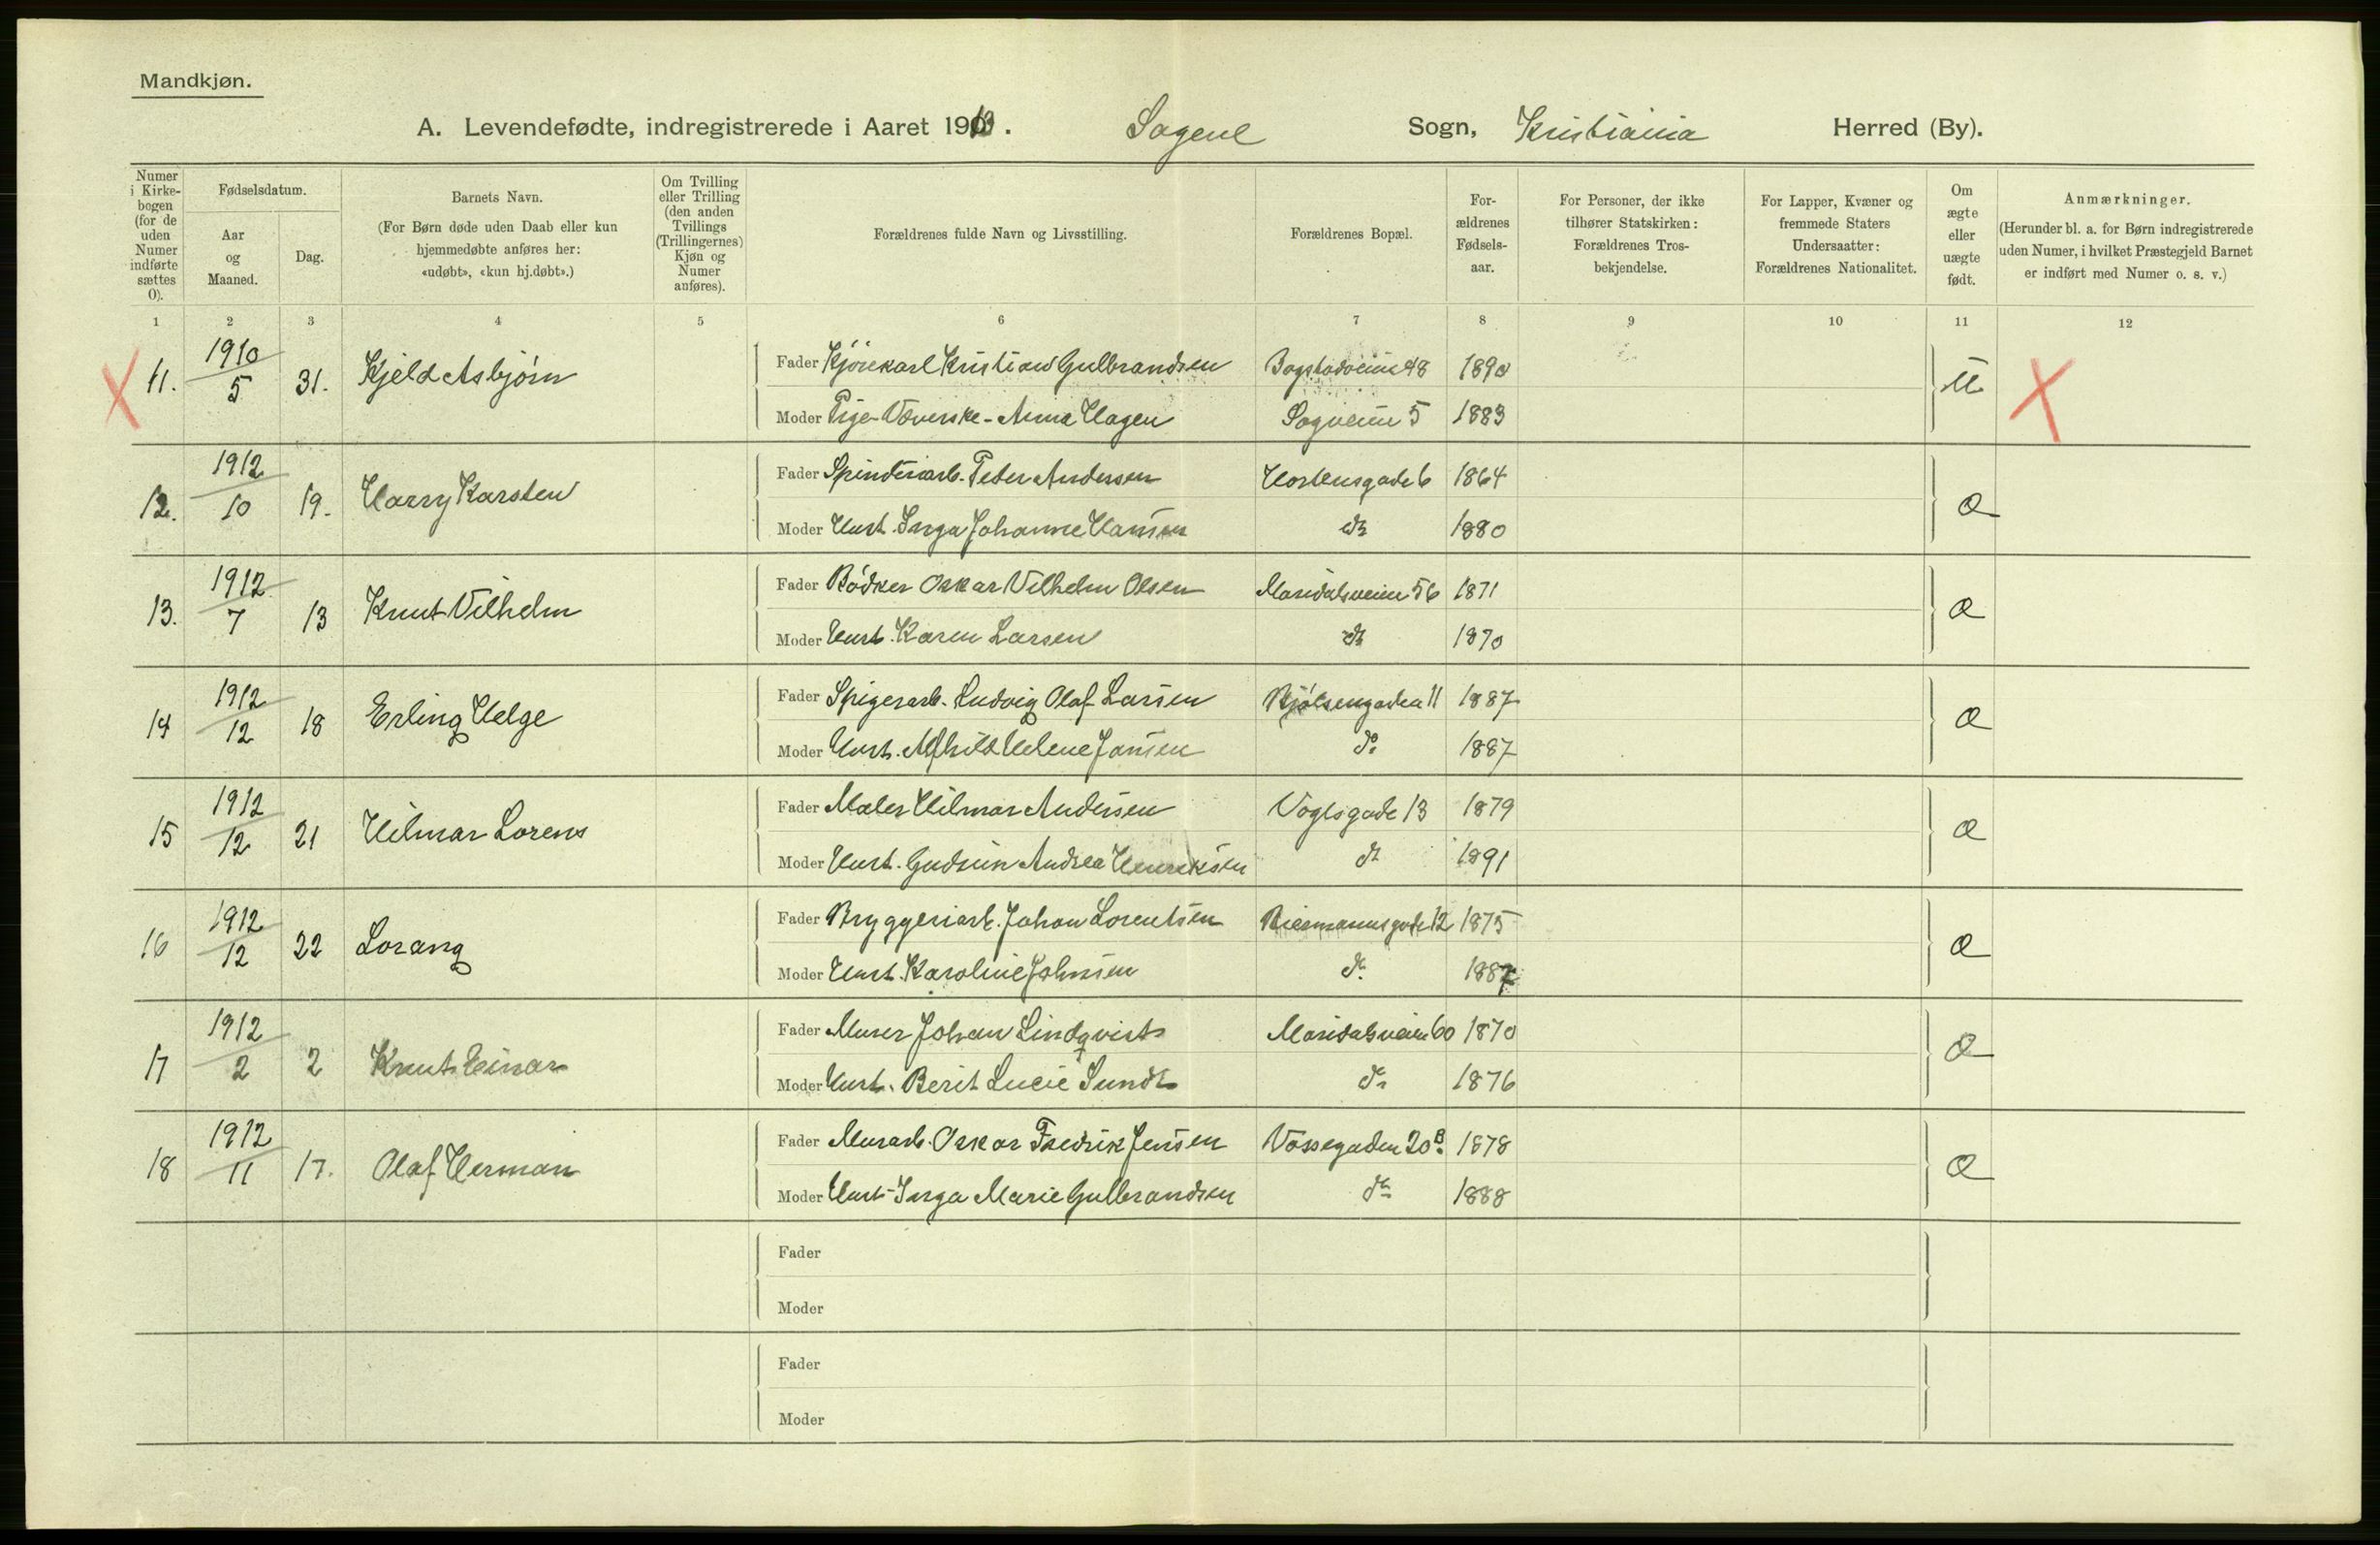 Mandkjøn.
A. Levendefødte, indregistrerede i Aaret 1913. Sagene Sogn, Kristiania Herred (By).
Numer i Kirke-bogen (for de uden Numer indførte sættes 0).
Fødselsdatum.
Aar og Maaned.
Dag.
Barnets Navn.
(For Børn døde uden Daab eller kun hjemmedøbte anføres her: «udøbt», «kun hj.døbt».)
Om Tvilling eller Trilling (den anden Tvillings (Trillingernes) Kjøn og Numer anføres).
Forældrenes fulde Navn og Livsstilling.
Forældrenes Bopæl.
For-ældrenes Fødsels-aar.
For Personer, der ikke tilhører Statskirken: Forældrenes Tros-bekjendelse.
For Lapper, Kvæner og fremmede Staters Undersaatter: Forældrenes Nationalitet.
Om ægte eller uægte født.
Anmærkninger.
(Herunder bl. a. for Børn indregistrerede uden Numer, i hvilket Præstegjeld Barnet er indført med Numer o. s. v.)
1 2 3 4 5 6 7 8 9 10 11 12
X 11. 1910/5 31. Kjeld Asbjörn Fader Kjörekarl Kristian Gulbrandsen Bogstadveien 48 1890 U X
Moder Pige-Væverske - Anna Hagen Sogveien 5 1883
12. 1912/10 19. Harry Karsten Fader Spinderiarb. Peter Andersen Hortensgade 6 1864 Æ
Moder Hust. Inga Johanne Hansen do 1880
13. 1912/7 13 Knut Vilhelm Fader Bödker Oskar Vilhelm Olsen Maridalsveien 56 1871 Æ
Moder Hust. Karen Larsen do 1870
14 1912/12 18 Erling Helge Fader Spigerarb. Ludvig Olaf Larsen Bjölsengaden 11 1887 Æ
Moder Hust. Alfhild Helene Jansen do 1887
15 1912/12 21 Hilmar Lorens Fader Maler Hilmar Andersen Vogtsgade 13 1879 Æ
Moder Hust. Gudrun Andrea Henriksen do 1891
16 1912/12 22 Lorang Fader Bryggeriarb. Johan Lorentsen Biermannsgade 12 1875 Æ
Moder Hust. Karoline Johnsen do 1887
17 1912/2 2 Knut Einar Fader Murer Johan Lindqvist Maridalsveien 60 1870 Æ
Moder Hust. Berit Lucie Sundt do 1876
18 1912/11 17. Olaf Herman Fader Murarb. Oskar Fredrik Jensen Vossegaden 20 B. 1878 Æ
Moder Hust. Inga Marie Gulbrandsen do 1888
Fader
Moder
Fader
Moder